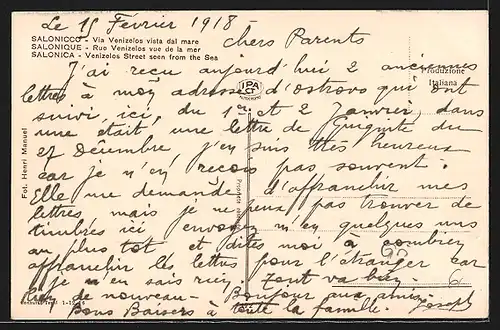 Le 15 Février 1918
SALONICCO - Via Venizelos vista dal mare
SALONIQUE - Rue Venizelos vue de la mer
SALONICA - Venizelos Street seen from the Sea
Chers Parents
Produzione Italiana
IPA
Fot. Henri Manuel
J'ai reçu aujourd'hui 2 anciennes
lettres à mon adresse d'ostrovo qui ont
suivi, ici, du 1er et 2 Janvier, dans
une était une lettre de du
27 Décembre j'en suis très heureux
car je n'en reçois pas souvent.
Elle me demande d'affranchir mes
lettres, mais je ne peux pas trouver de
timbres ici envoyez m'en quelques uns
au plus tot et dites moi à combien
affranchir les lettres pour l'étranger car
je n'en sais rien, tout va bien
de nouveau - Bonjour aux amis
Bons Baisers à toute la famille. Joseph